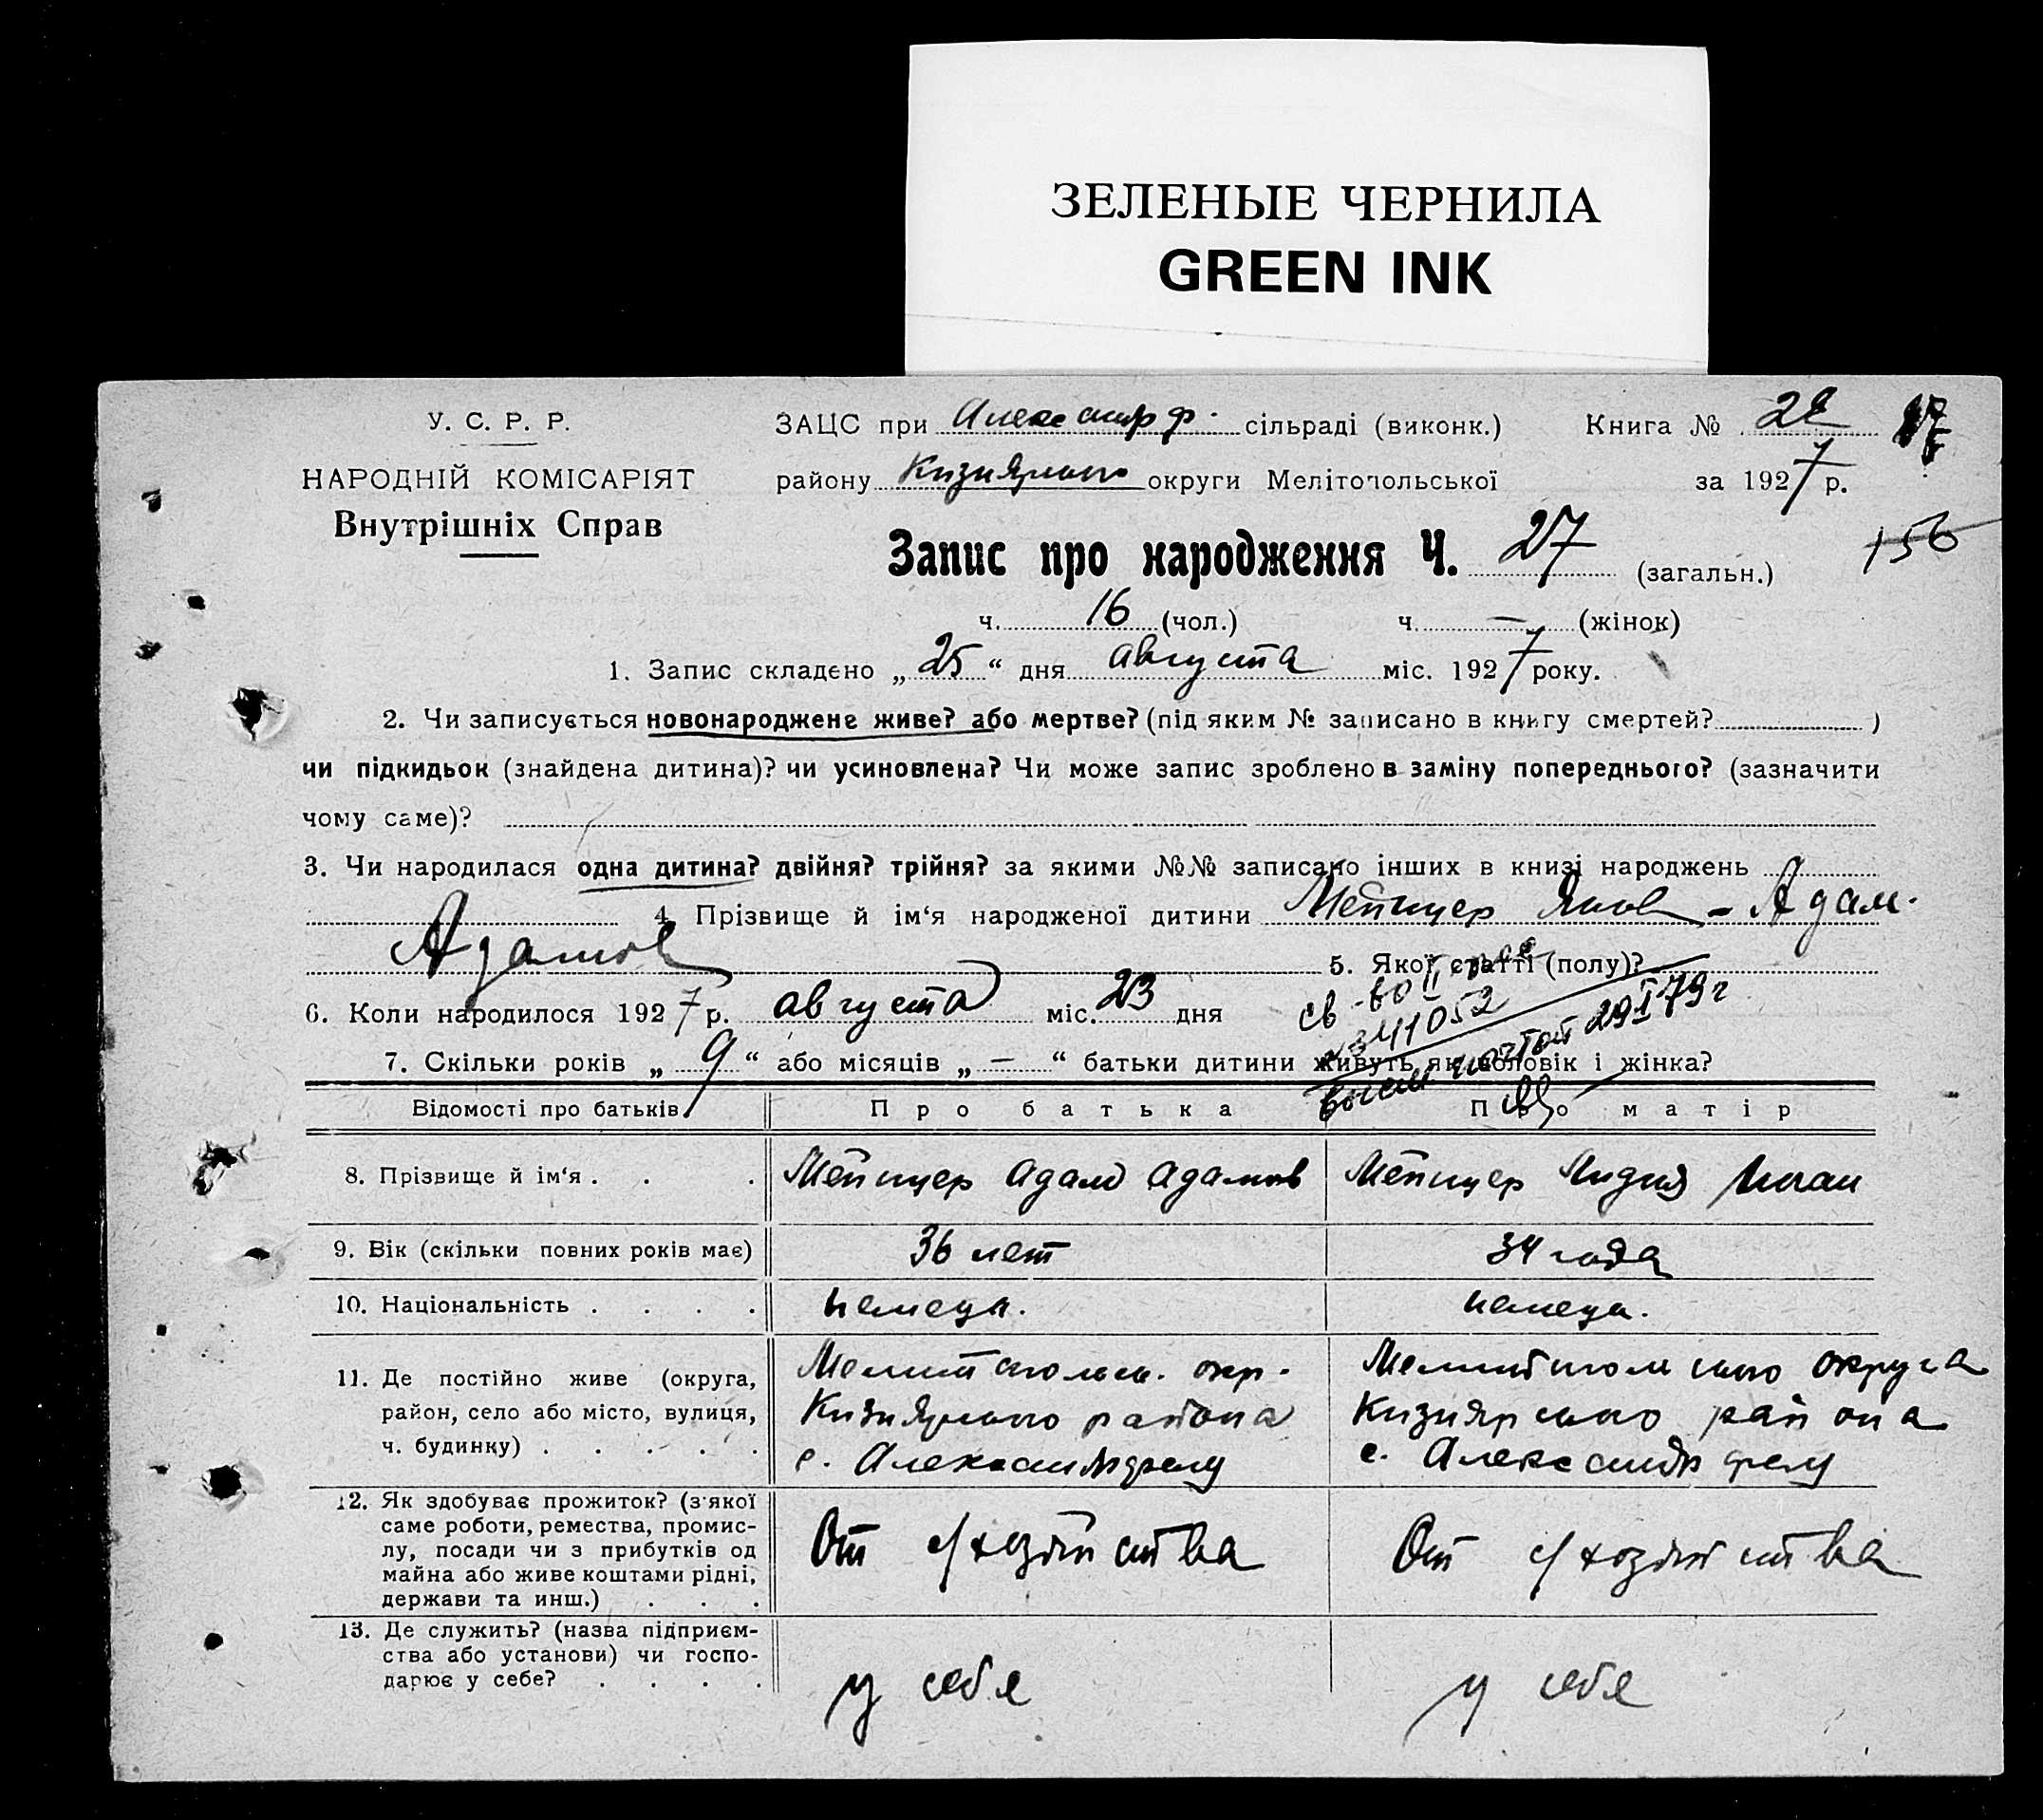 ЗЕЛЕНЫЕ ЧЕРНИЛА
GREEN INK
У. С. Р. Р.
НАРОДНІЙ КОМІСАРІЯТ
Внутрішніх Справ
ЗАЦС при Александрф. сільраді (виконк.) Книга №
району Кизиярского округи Мелітопольської за 1927 р.
156
Запис про народження Ч. 27 (загальн.)
ч. 16 (чол.) ч. — (жінок)
1. Запис складено „25“ дня августа міс. 1927 року.
2. Чи записується новонароджене живе? або мертве? (під яким № записано в книгу смертей? )
чи підкидьок (знайдена дитина)? чи усиновлена? Чи може запис зроблено в заміну попереднього? (зазначити
чому саме)?
3. Чи народилася одна дитина? двійня? трійня? за якими №№ записано інших в книзі народжень
4. Прізвище й ім‘я народженої дитини Мейцер Яков - Адам.
Адамов
5. Якої статті (полу)?
6. Коли народилося 1927 р. августа міс. 23 дня
св-во II
341052
29 I 79 г
7. Скільки років „9“ або місяців „—“ батьки дитини живуть як чоловік і жінка?
Відомості про батьків Про батька Про матір
8. Прізвище й ім‘я . . . Мейцер Адам Адамов Мейцер Лидия Иоган
9. Вік (скільки повних років має) 36 лет 34 года
10. Національність . . . . немецк. немецк.
11. Де постійно живе (округа, район, село або місто, вулиця, ч. будинку) . . . . .
Мелитопольск. окр.
Кизиярского района
с. Александрфельд
Мелитопольского округа
Кизиярского района
с. Александрфельд
12. Як здобуває прожиток? (з'якої
саме роботи, ремества, промис-
лу, посади чи з прибутків од
майна або живе коштами рідні,
держави та инш.) . . .
От с/хозяйства От с/хозяйства
13. Де служить? (назва підприєм-
ства або установи) чи госпо-
дарює у себе? . . . .
у себя у себя